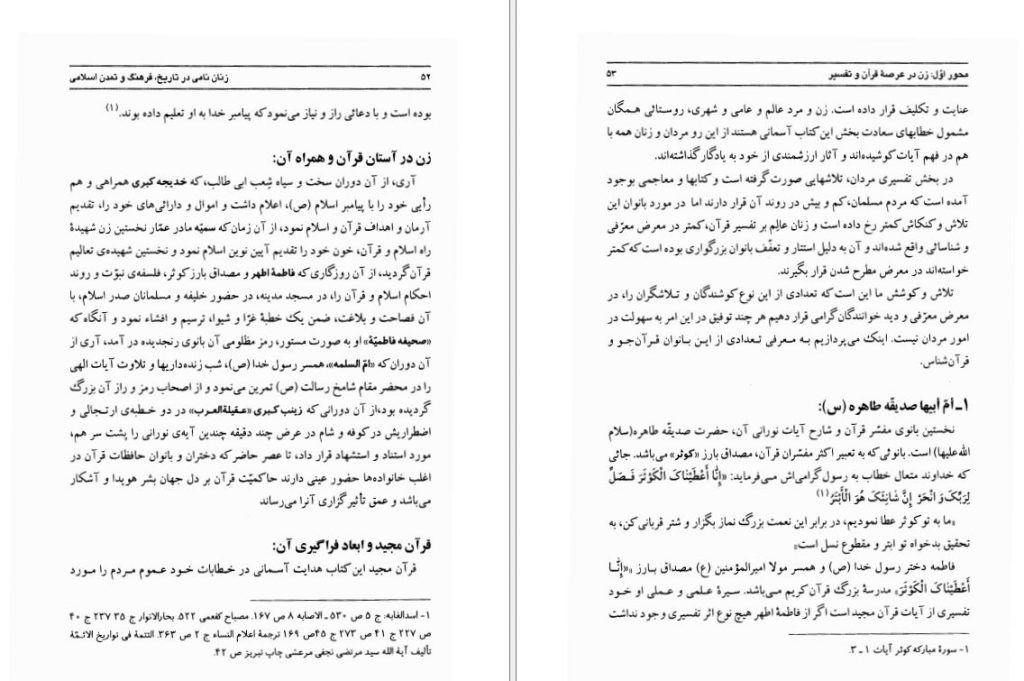 ۵۲ زنان نامی در تاریخ، فرهنگ و تمدن اسلامی
بوده است و با دعائی راز و نیاز می‌نمود که پیامبر خدا به او تعلیم داده بوند.(۱)
زن در آستان قرآن و همراه آن:
آری، از آن دوران سخت و سیاه شِعب ابی طالب، که خدیجه کبری همراهی و هم
رأیی خود را با پیامبر اسلام (ص)، اعلام داشت و اموال و دارائی‌های خود را، تقدیم
آرمان و اهداف قرآن و اسلام نمود، از آن زمان که سمیّه مادر عمّار نخستین زن شهیدهٔ
راه اسلام و قرآن، خون خود را تقدیم آیین نوین اسلام نمود و نخستین شهیده‌ی تعالیم
قرآن گردید، از آن روزگاری که فاطمهٔ اطهر و مصداق بارز کوثر، فلسفه‌ی نبوّت و روند
احکام اسلام و قرآن را، در مسجد مدینه، در حضور خلیفه و مسلمانان صدر اسلام، با
آن فصاحت و بلاغت، ضمن یک خطبهٔ غرّا و شیوا، ترسیم و افشاء نمود و آنگاه که
«صحیفه فاطمیّه» او به صورت مستور، رمز مظلومی آن بانوی رنجدیده در آمد، آری از
آن دوران که «امّ السلمه»، همسر رسول خدا (ص)، شب زنده‌داریها و تلاوت آیات الهی
را در محضر مقام شامخ رسالت (ص) تمرین می‌نمود و از اصحاب رمز و راز آن بزرگ
گردیده بود، از آن دورانی که زینب کبری «عقیلة‌العرب» در دو خطبه‌ی ارتجالی و
اضطراریش در کوفه و شام در عرض چند دقیقه چندین آیه‌ی نورانی را پشت سر هم،
مورد استناد و استشهاد قرار داد، تا عصر حاضر که دختران و بانوان حافظات قرآن در
اغلب خانواده‌ها حضور عینی دارند حاکمیّت قرآن بر دل جهان بشر هویدا و آشکار
می‌باشد و عمق تأثیر گزاری آنرا می‌رساند
قرآن مجید و ابعاد فراگیری آن:
قرآن مجید این کتاب هدایت آسمانی در خطابات خود عموم مردم را مورد
۱- اسدالغابه: ج ۵ ص ۵۳۰ ـ الاصابه ۸ ص ۱۶۷. مصباح کفعمی ۵۲۲. بحارالانوار ج ۳۵ ۲۳۷ ج ۴۰
ص ۲۲۷ ج ۴۱ ص ۲۷۳ ج ۴۵ص ۱۶۹ ترجمة اعلام النساء ج ۲ ص ۳۶۳. التتمة فی تواریخ الائمّة
تألیف آیة الله سید مرتضی نجفی مرعشی چاپ تبریز ص ۴۲.
محور اوّل: زن در عرصهٔ قرآن و تفسیر ۵۳
عنایت و تکلیف قرار داده است. زن و مرد عالم و عامی و شهری، روستائی همگان
مشمول خطابهای سعادت بخش این کتاب آسمانی هستند از این رو مردان و زنان همه با
هم در فهم آیات کوشیده‌اند و آثار ارزشمندی از خود به یادگار گذاشته‌اند.
در بخش تفسیری مردان، تلاشهایی صورت گرفته است و کتابها و معاجمی بوجود
آمده است که مردم مسلمان، کم و بیش در روند آن قرار دارند اما در مورد بانوان این
تلاش و کنکاش کمتر رخ داده است و زنان عالِم بر تفسیر قرآن، کمتر در معرض معرّفی
و شناسائی واقع شده‌اند و آن به دلیل استتار و تعفّف بانوان بزرگواری بوده است که کمتر
خواسته‌اند در معرض مطرح شدن قرار بگیرند.
تلاش و کوشش ما این است که تعدادی از این نوع کوشندگان و تلاشگران را، در
معرض معرّفی و دید خوانندگان گرامی قرار دهیم هر چند توفیق در این امر به سهولت در
امور مردان نیست. اینک می‌پردازیم به معرفی تعدادی از این بانوان قرآن‌جو و
قرآن‌شناس.
۱ـ اُمّ اَبیها صدیقّه طاهره (س):
نخستین بانوی مفسّر قرآن و شارح آیات نورانی آن، حضرت صدیقّه طاهره(سلام
الله‌علیها) است. بانوئی که به تعبیر اکثر مفسّران قرآن، مصداق بارز «کوثر» می‌باشد. جائی
که خداوند متعال خطاب به رسول گرامی‌اش می‌فرماید: «إِنَّا أَعْطَیْناکَ الْکَوْثَرَ فَصَلِّ
لِرَبِّکَ وَ انْحَرْ إِنَّ شانِئَکَ هُوَ الْأَبْتَرُ(۱)
«ما به تو کوثر عطا نمودیم، در برابر این نعمت بزرگ نماز بگزار و شتر قربانی کن، به
تحقیق بدخواه تو ابتر و مقطوع نسل است»
فاطمه دختر رسول خدا (ص) و همسر مولا امیرالمؤمنین (ع) مصداق بارز «إِنَّـا
أَعْطَیْناکَ الْکَوْثَرَ» مدرسهٔ بزرگ قرآن کریم می‌باشد. سیرهٔ علمی و عملی او خود
تفسیری از آیات قرآن مجید است اگر از فاطمهٔ اطهر هیچ نوع اثر تفسیری وجود نداشت
۱- سورهٔ مبارکه کوثر آیات ۱ ـ ۳.